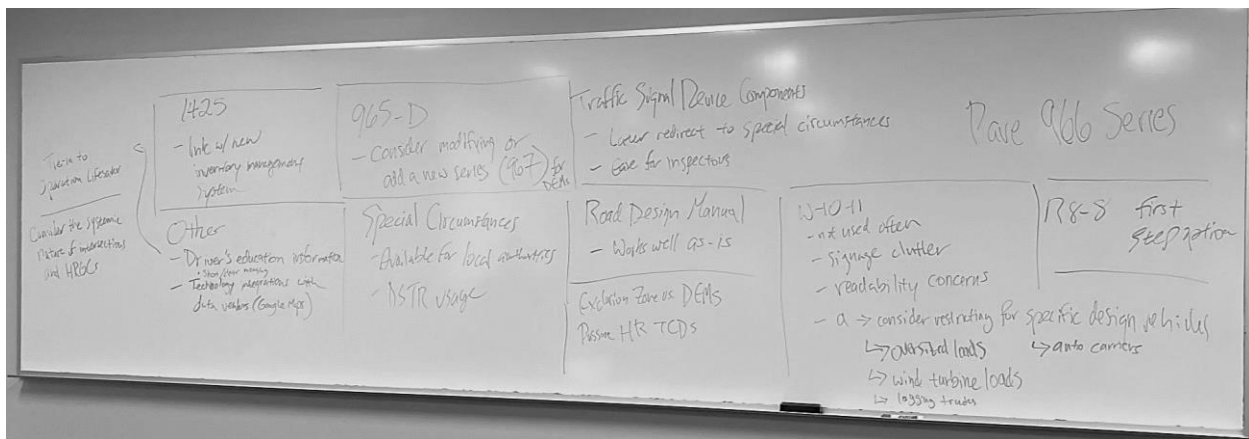 Tie-in to
Operation Lifesaver
Consider the systemic
nature of intersections
and HRGCs
1425
- link w/ new
inventory management
system
Other
- Driver's education information
• meaning
- Technology integrations with
data vendors (Google Maps)
965-D
- Consider modifying or
add a new series (967) for
DEMs
Special Circumstances
- Available for local authorities
- DSTR usage
Traffic Signal Device Components
- Layer redirect to special circumstances
- for inspectors
Road Design Manual
- Works well as-is
Exclusion Zone vs DEMs
Passive HR TCDs
Pave 966 Series
W-10-11
- not used often
- signage clutter
- readability concerns
- a → consider restricting for specific design vehicles
↳ oversized loads ↳ auto carriers
↳ wind turbine loads
↳ logging trucks
R8-8 first
step option